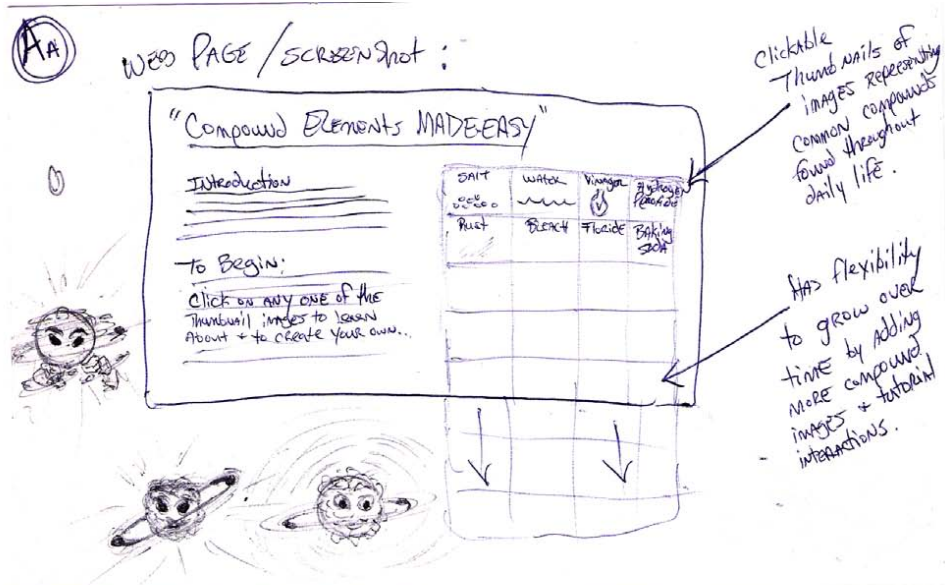 AA
WEB PAGE / SCREENSHOT :
"COMPOUND ELEMENTS MADE-EASY"
INTRODUCTION
TO BEGIN:
CLICK ON ANY ONE OF THE
THUMBNAIL IMAGES TO LEARN
ABOUT + TO CREATE YOUR OWN...
SALT WATER VINAGER HYDROGEN
PEROXIDE
RUST BLEACH FLORIDE BAKING
SODA
CLICKABLE
THUMBNAILS OF
IMAGES REPRESENTING
COMMON COMPOUNDS
FOUND THROUGHOUT
DAILY LIFE.
HAS FLEXIBILITY
TO GROW OVER
TIME BY ADDING
MORE COMPOUND
IMAGES + TUTORIAL
INTERACTIONS.